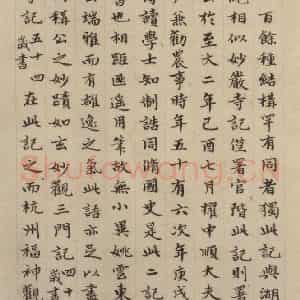 百餘種結構罕有同者獨此記與湖
相似妙嚴寺記署官階此記則署
公於至大二年己酉七月擢中順大夫
兼勸農事時年五十有六次年庚戌
讀學士知制誥同脩國史是此二記
書也相距匪遥用筆故無小異姚雲東
公端雅而有雄逸之氣此語亦足以盡
構公之妙蹟如玄妙觀三門記歲書
記五十四歲書在此記之前而杭州福神觀
Shufawang.CN